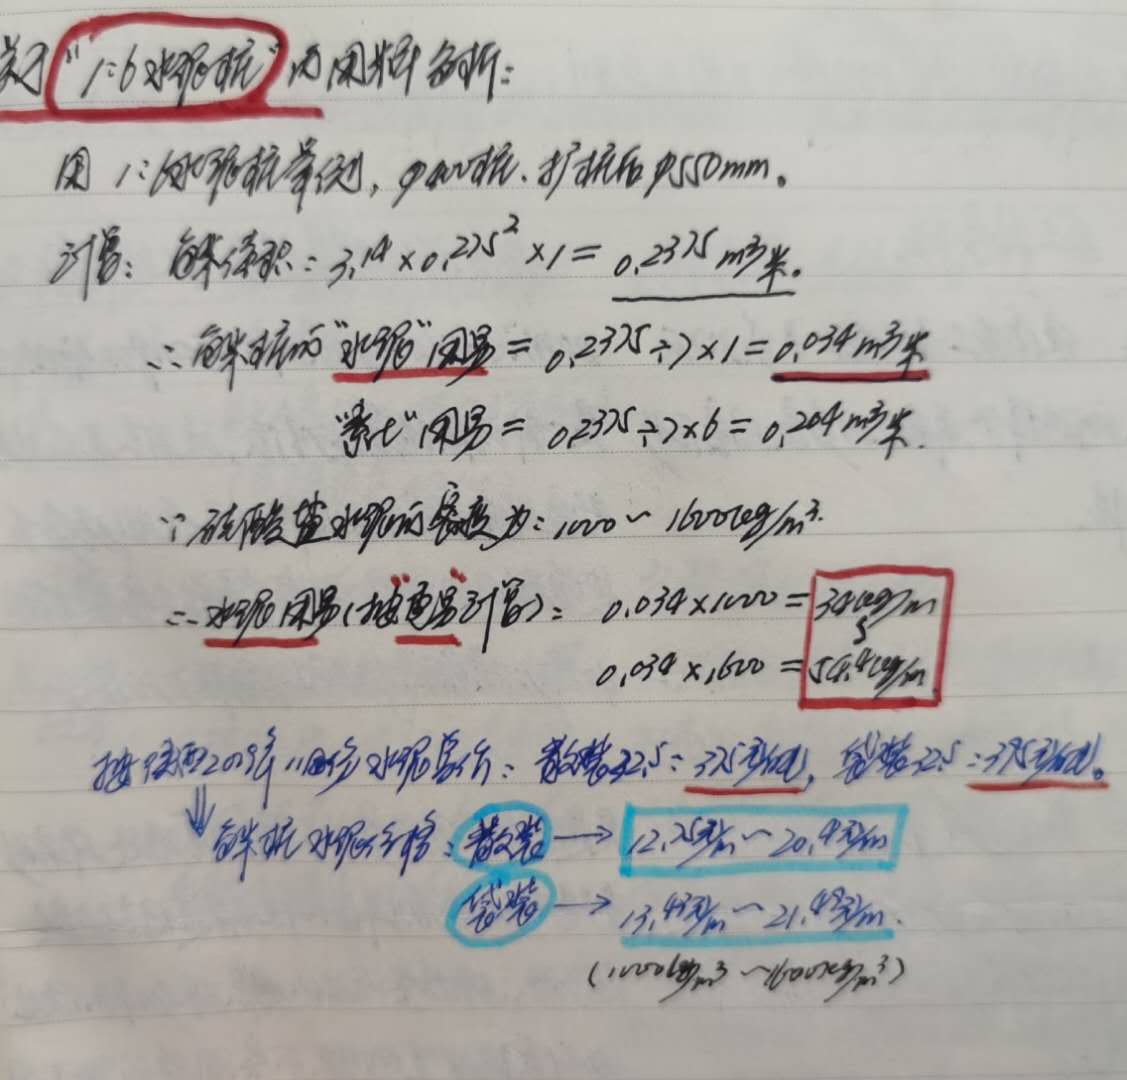 关于"1:6水泥桩"的用料分析:
用1:6水泥桩举例，φ400桩.扩桩后φ550mm。
计算: 每米体积: 3.14×0.275²×1=0.2375m³/米。
∴ 每米桩的"水泥"用量=0.2375÷7×1=0.034m³/米
"素土"用量=0.2375÷7×6=0.204m³/米.
∵ 硅酸盐水泥的容度为: 1000~1600kg/m³.
∴ 水泥用量(按"重量"计算): 0.034×1000=34kg/m
~
0.034×1600=54.4kg/m
按陕西2019年11月份水泥单价: 散装32.5: 375元/吨, 袋装32.5: 395元/吨。
⇓ 每米桩水泥价格: 散装 → 12.75元/m~20.4元/m
袋装 → 13.43元/m~21.49元/m.
(1000kg/m³~1600kg/m³)